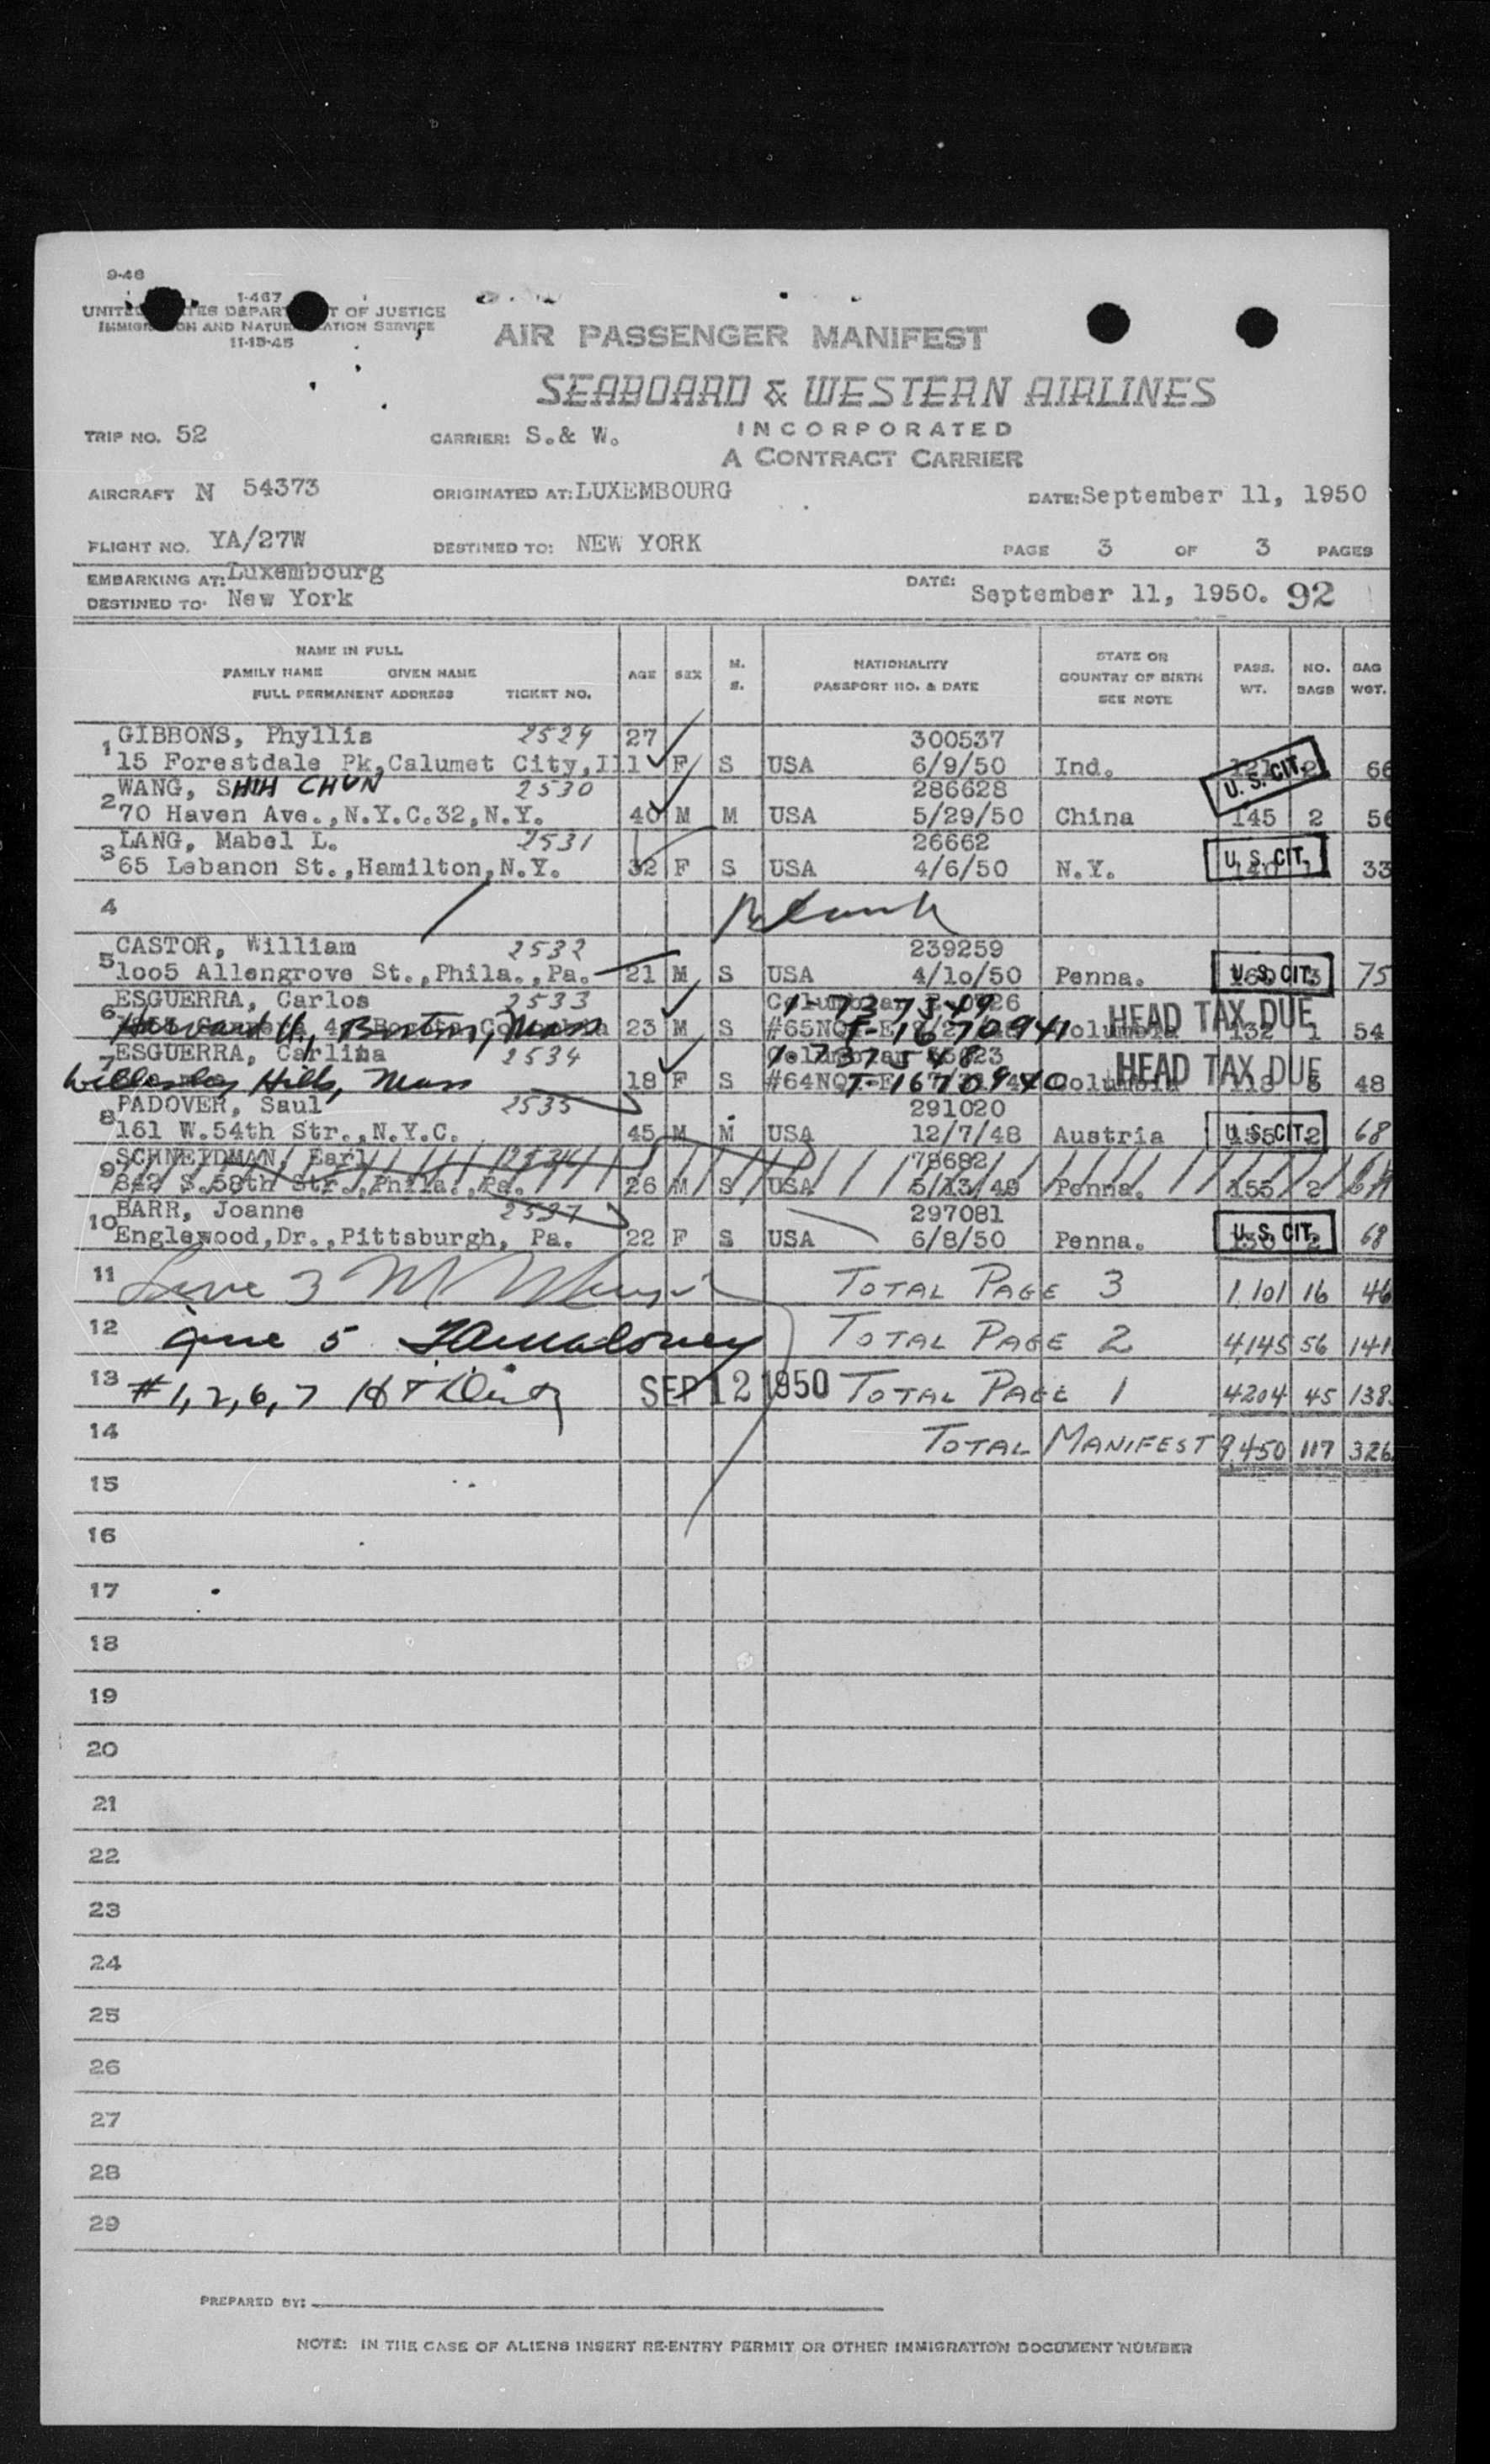 9-46
I-467
UNITED STATES DEPARTMENT OF JUSTICE
IMMIGRATION AND NATURALIZATION SERVICE
11-15-45
AIR PASSENGER MANIFEST
SEABOARD & WESTERN AIRLINES
INCORPORATED
A CONTRACT CARRIER
TRIP NO. 52 CARRIER: S.& W.
AIRCRAFT N 54373 ORIGINATED AT: LUXEMBOURG DATE: September 11, 1950
FLIGHT NO. YA/27W DESTINED TO: NEW YORK PAGE 3 OF 3 PAGES
EMBARKING AT: Luxembourg DATE: September 11, 1950. 92
DESTINED TO: New York
NAME IN FULL
FAMILY NAME GIVEN NAME
FULL PERMANENT ADDRESS TICKET NO. AGE SEX M. S. NATIONALITY PASSPORT NO. & DATE STATE OR COUNTRY OF BIRTH SEE NOTE PASS. WT. NO. BAGS BAG WGT.
1 GIBBONS, Phyllis 2529 27 300537
15 Forestdale Pk,Calumet City,Ill F S USA 6/9/50 Ind. U. S. CIT. 66
2 WANG, SHIH CHUN 2530 286628
70 Haven Ave.,N.Y.C.32,N.Y. 40 M M USA 5/29/50 China 145 2 56
3 LANG, Mabel L. 2531 26662
65 Lebanon St.,Hamilton,N.Y. 32 F S USA 4/6/50 N.Y. U. S. CIT. 33
4 Blank
5 CASTOR, William 2532 239259
1005 Allengrove St.,Phila.,Pa. 21 M S USA 4/10/50 Penna. U. S. CIT. 75
6 ESGUERRA, Carlos 2533 1-737549
Harvard U, Boston, Mass 23 M S T-1670941 Columbia HEAD TAX DUE 132 1 54
7 ESGUERRA, Carlina 2534 1-737548
Wellesley Hills, Mass 18 F S T-1670940 Columbia HEAD TAX DUE 48
8 PADOVER, Saul 2535 291020
161 W.54th Str.,N.Y.C. 45 M M USA 12/7/48 Austria U. S. CIT. 2 68
9 SCHNEIDMAN, Earl 78682
842 S.58th Str.,Phila.,Pa. 26 M S USA 5/13/49 Penna. 155 2
10 BARR, Joanne 2537 297081
Englewood,Dr.,Pittsburgh, Pa. 22 F S USA 6/8/50 Penna. U. S. CIT. 68
11 Line 3 TOTAL PAGE 3 1,101 16 46
12 line 5 TOTAL PAGE 2 4,145 56 141
13 #1,2,6,7 SEP 12 1950 TOTAL PAGE 1 4204 45 138
14 TOTAL MANIFEST 9,450 117 326
15
16
17
18
19
20
21
22
23
24
25
26
27
28
29
PREPARED BY:
NOTE: IN THE CASE OF ALIENS INSERT RE-ENTRY PERMIT OR OTHER IMMIGRATION DOCUMENT NUMBER